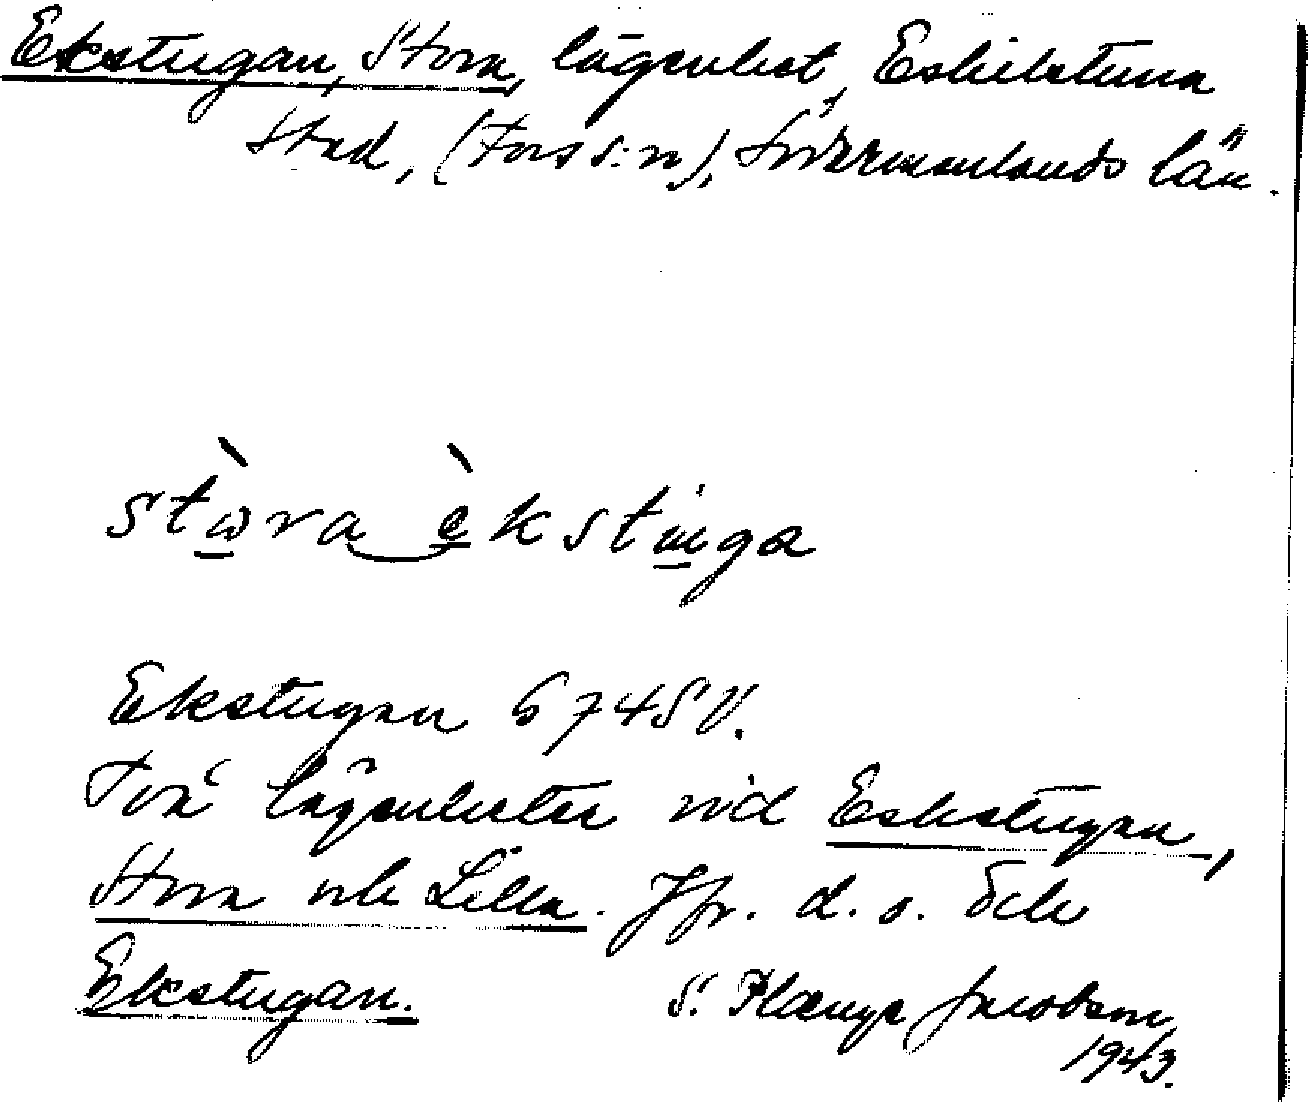 Ekstugan, Stora, lägenhet, Eskilstuna
stad, (Fors s:n), Södermanlands län.
Ekstugan 6745V.
Två lägenheter vid Ekstugan,
Stora och Lilla. Jfr. d. o. och
Ekstugan. S. Jacobson,
1943.